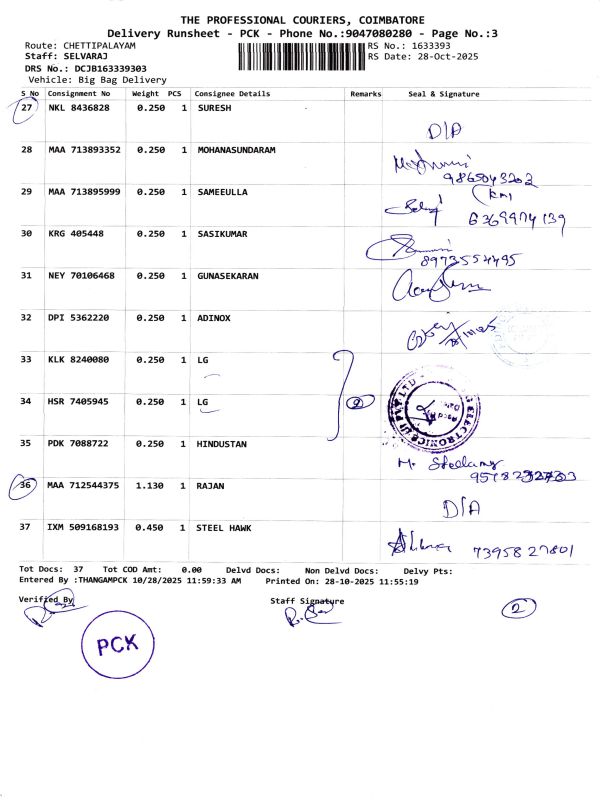 THE PROFESSIONAL COURIERS, COIMBATORE
Delivery Runsheet - PCK - Phone No.:9047080280 - Page No.:3
Route: CHETTIPALAYAM RS No.: 1633393
Staff: SELVARAJ RS Date: 28-Oct-2025
DRS No.: DCJB163339303
Vehicle: Big Bag Delivery
S_No Consignment No Weight PCS Consignee Details Remarks Seal & Signature
27 NKL 8436828 0.250 1 SURESH
D/A
28 MAA 713893352 0.250 1 MOHANASUNDARAM
9865043202
29 MAA 713895999 0.250 1 SAMEEULLA
6369974139
30 KRG 405448 0.250 1 SASIKUMAR
8973554495
31 NEY 70106468 0.250 1 GUNASEKARAN
32 DPI 5362220 0.250 1 ADINOX
33 KLK 8240080 0.250 1 LG
34 HSR 7405945 0.250 1 LG 2
35 PDK 7088722 0.250 1 HINDUSTAN
36 MAA 712544375 1.130 1 RAJAN
D/A
37 IXM 509168193 0.450 1 STEEL HAWK
73958 27801
Tot Docs: 37 Tot COD Amt: 0.00 Delvd Docs: Non Delvd Docs: Delvy Pts:
Entered By :THANGAMPCK 10/28/2025 11:59:33 AM Printed On: 28-10-2025 11:55:19
Verified By Staff Signature
2
PCK